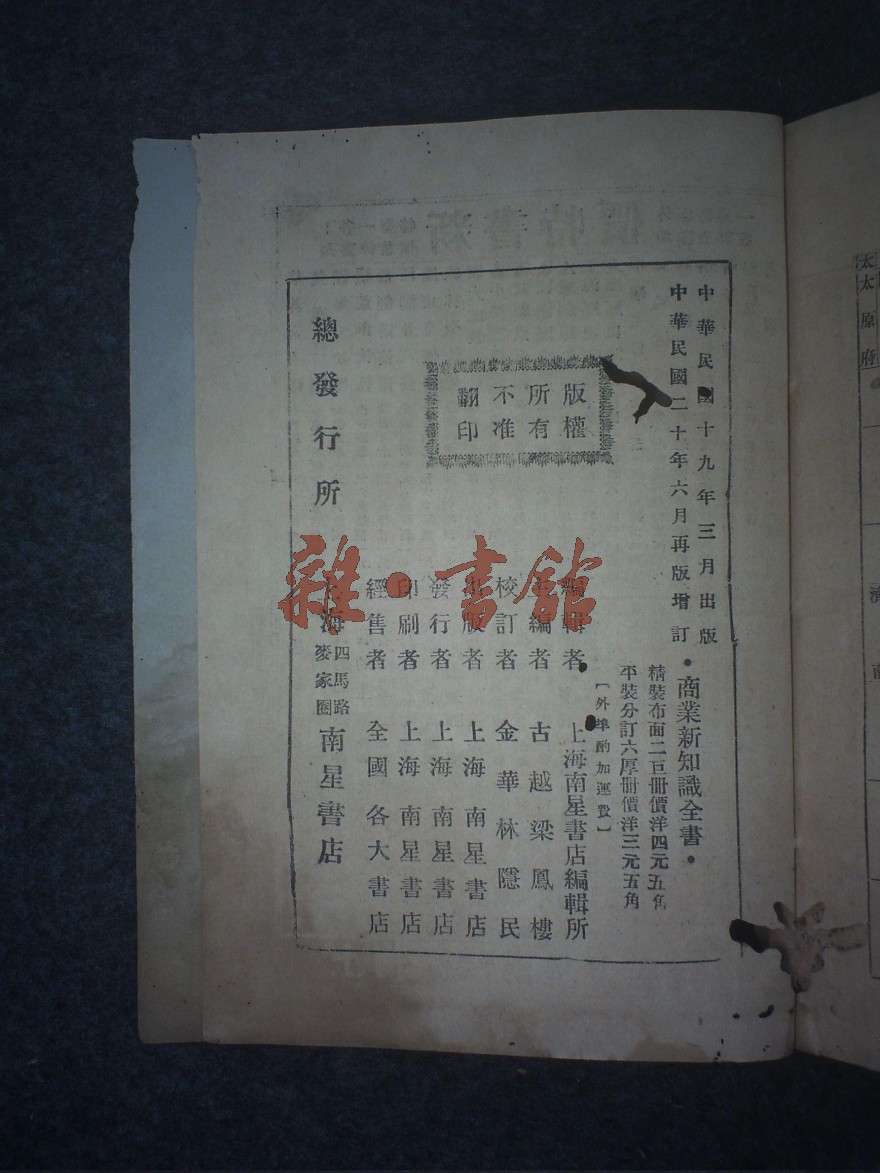 中華民國十九年三月出版
中華民國二十年六月再版增訂
•商業新知識全書•
精裝布面二巨册價洋四元五角
平裝分訂六厚册價洋三元五角
【外埠酌加運費】
版權
所有
不准
翻印
編輯者 上海南星書店編輯所
主編者 古越梁鳳樓
校訂者 金華林隱民
出版者 上海南星書店
發行者 上海南星書店
印刷者 上海南星書店
經售者 全國各大書店
總發行所 上海四馬路麥家圈南星書店
雜·書館
太原府
濟南